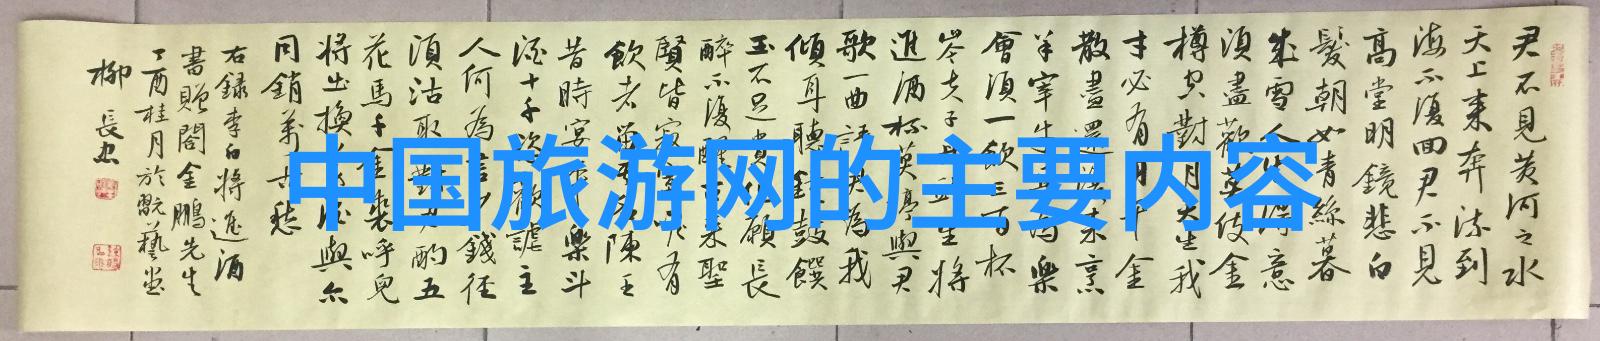 中国旅游网的主要内容
君不見黃河之水
天上來奔流到
海不復回君不見
高堂明鏡悲白
髮朝如青絲暮
成雪人生得意
須盡歡莫使金
樽空對月天生我
才必有用千金
散盡還復來烹
羊宰牛且為樂
會須一飲三百杯
岑夫子丹丘生將
進酒杯莫停與君
歌一曲請君為我
傾耳聽鐘鼓饌
玉不足貴但願長
醉不復醒古來聖
賢皆寂寞惟有
飲者留其名陳王
昔時宴平樂斗
酒十千恣歡謔主
人何為言少錢徑
須沽取對君酌五
花馬千金裘呼兒
將出換美酒與尒
同銷萬古愁
右録李白將進酒
書贈閤金鵬先生
丁酉桂月於翫藝堂
柳長忠